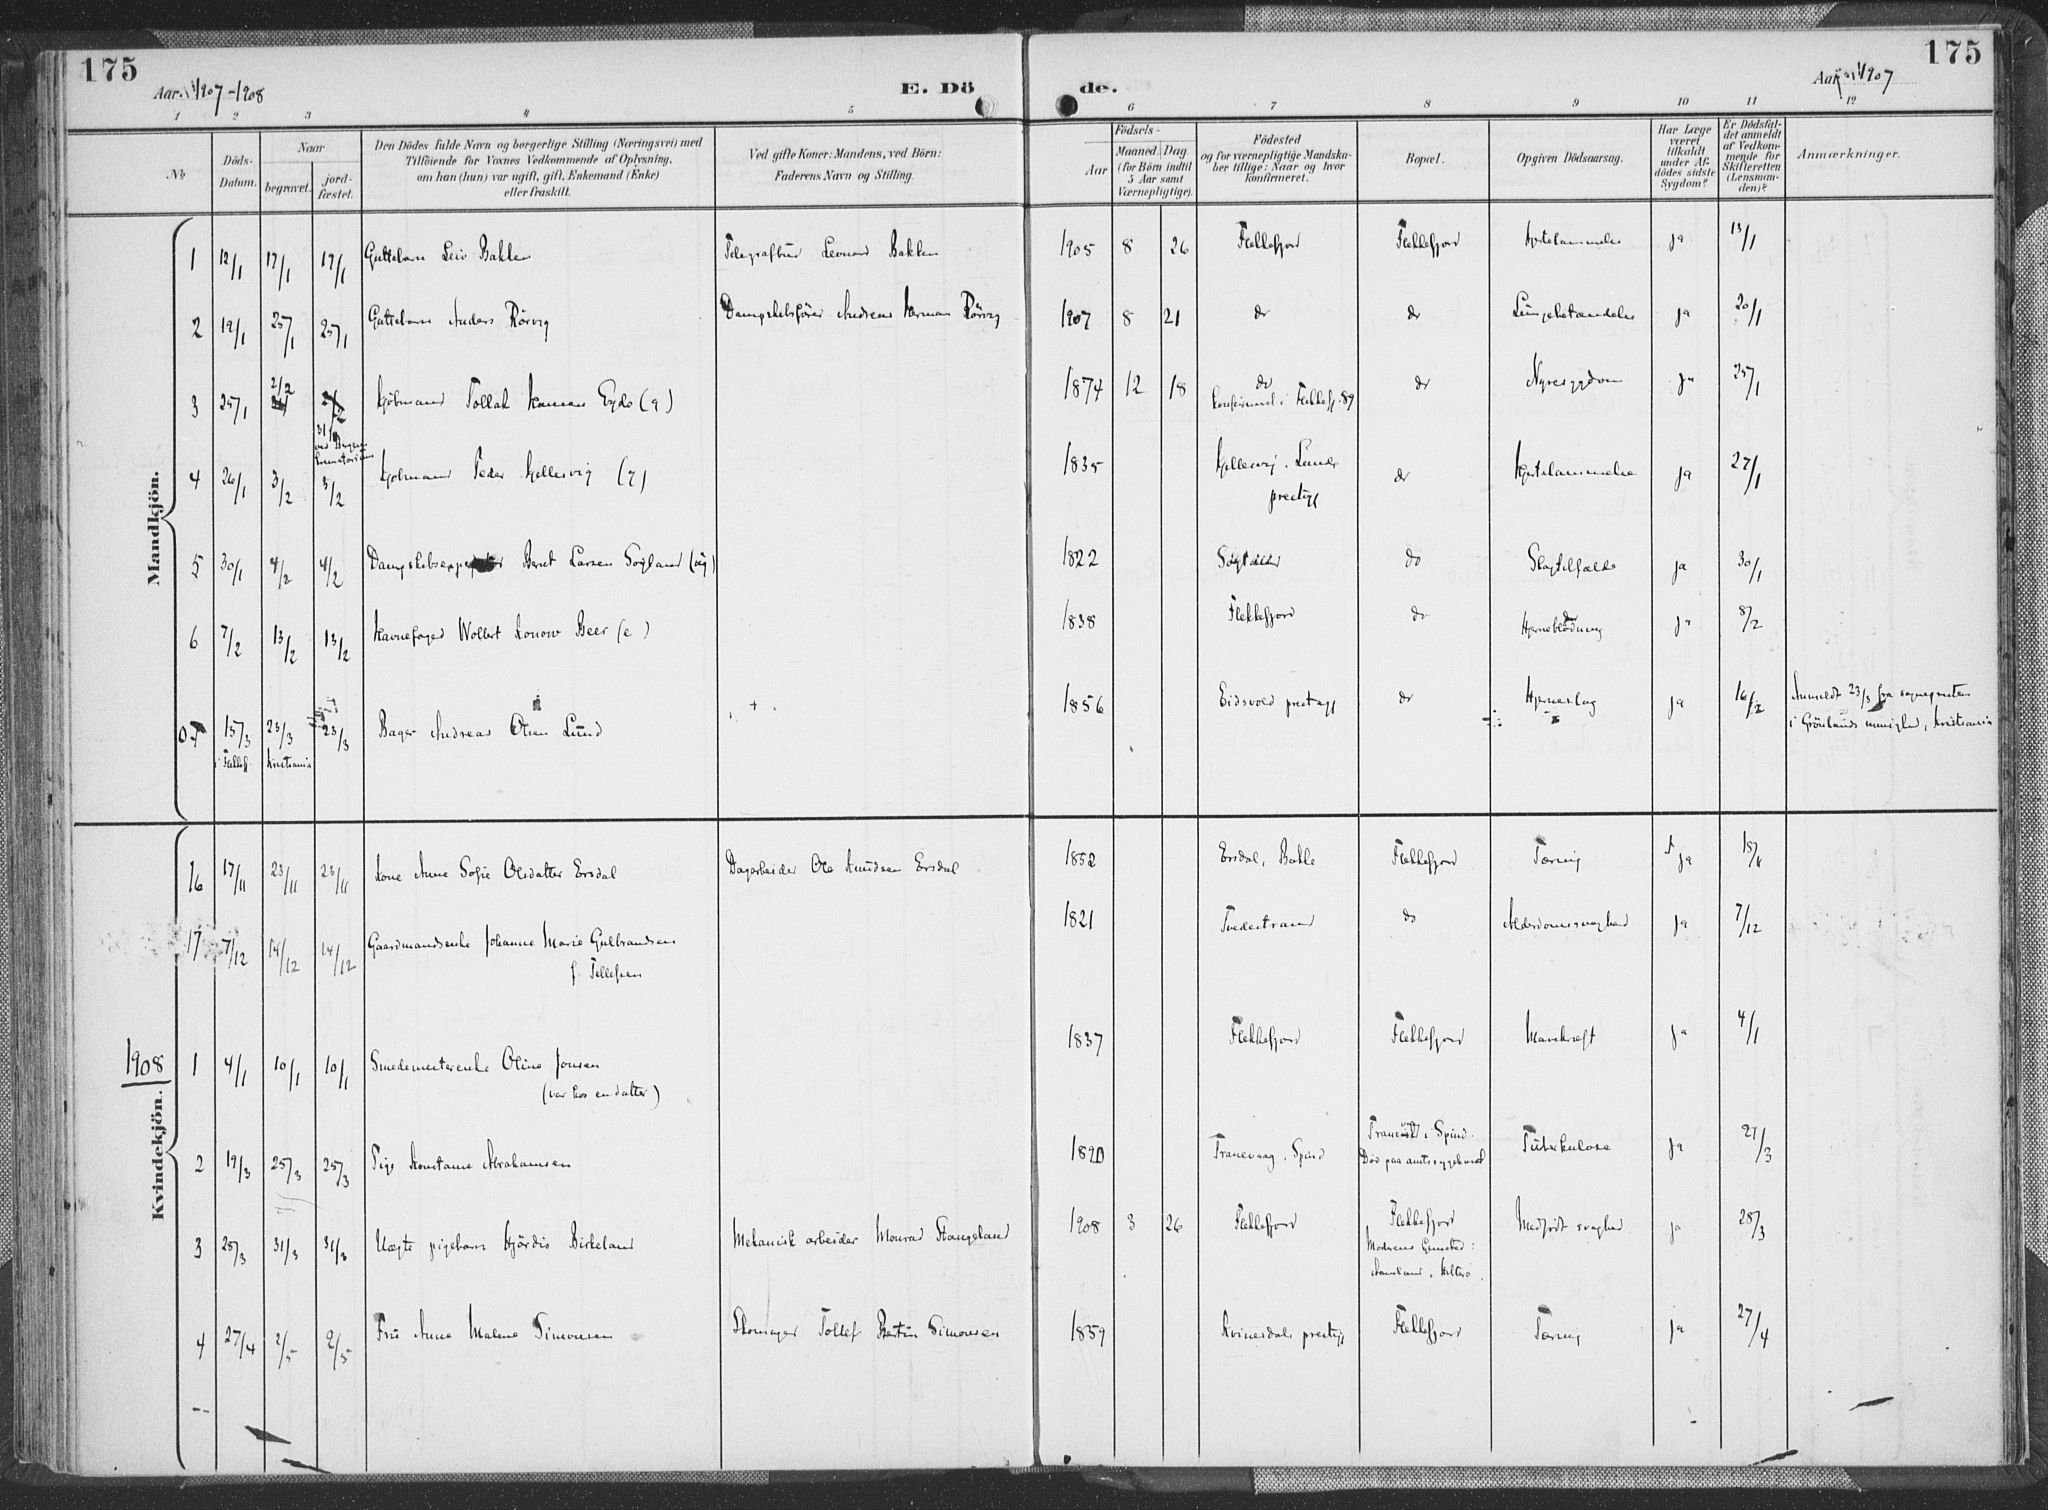 175
Aar 1907-1908
E. Dö
de.
Aar 1907
175
1 2 3 4 5 6 7 8 9 10 11 12
No
Döds-Datum.
Naar
begravet.
jord-fæstet.
Den Dödes fulde Navn og borgerlige Stilling (Næringsvei) med
Tilföiende for Voxnes Vedkommende af Oplysning,
om han (hun) var ugift, gift, Enkemand (Enke)
eller fraskilt.
Ved gifte Koner: Mandens, ved Börn:
Faderens Navn og Stilling.
Födsels-
Aar
Maaned. Dag
(for Börn indtil
5 Aar samt
Værnepligtige).
Födested
og for værnepligtige Mandska-
ber tillige: Naar og hvor
konfirmeret.
Bopæl.
Opgiven Dödsaarsag.
Har Læge
været
tilkaldt
under Af-
dödes sidste
Sygdom?
Er Dödsfal-
det anmeldt
af Vedkom-
mende for
Skifteretten
(Lensman-
den)?
Anmærkninger.
Mandkjön.
1 12/1 17/1 17/1 Guttebarn Leiv Bakken Telegrafbud Leonard Bakken 1905 8 26 Flekkefjord Flekkefjord Hjertelammelse ja 13/1
2 19/1 25/1 25/1 Guttebarn Anders Rörvig Dampskibsförer Andreas Herman Rörvig 1907 8 21 do do Lungebetændelse ja 20/1
3 25/1 2/2 2/2 Kjöbmand Tollak Haman Eyde (g) 1874 12 18 do do Nyresygdom ja 25/1
31/1
ved Bergens
krematorium
konfirmeret i Flekkefj. 89
4 26/1 3/2 3/2 Kjöbmand Peder Kjellesvig (g) 1835 Kjellesvig, Lunde do Hjertelammelse ja 27/1
prestegj
5 30/1 4/2 4/2 Bernt Larsen (ug) 1822 do Slagtilfælde ja 30/1
6 7/2 13/2 13/2 Havnefoged Wollert Konow Beer (e) 1838 Flekkefjord do Hjerneblödning ja 8/2
07 15/3 23/3 23/3 Bager Andreas Olsen Lund 1856 Eidsvold prestegj do Hjerneslag ja 16/2 Anmeldt 23/3 fra sognepresten
i Flekkef. Kristiania
i Grönlands menighed, Kristiania
16 17/11 23/11 23/11 Kone Anne Sofie Olsdatter Ersdal Dagarbeider Ole Knudsen Ersdal 1852 Ersdal, Bakke Flekkefjord Tæring ja 18/11
17 7/12 14/12 14/12 Gaardmandsenke Johanne Marie Gulbrandsen 1821 Tvedestrand do Alderdomssvaghed ja 7/12
f. Tellefsen
1908
Kvindekjön.
1 4/1 10/1 10/1 Smedemesterenke Oline Jonsen 1837 Flekkefjord Flekkefjord Mavekræft ja 4/1
(var hos en datter)
2 19/3 25/3 25/3 Pige Konstanse Abrahamsen 1890 Tranevaag, Spind Tuberkulose ja 27/3
Død paa amtssygehuset
3 25/3 31/3 31/3 Uægte pigebarn Hjördis Birkeland Mekanisk arbeider Monrad Stangeland 1908 3 26 Flekkefjord Flekkefjord Medfødt svaghed ja 28/3
Moderens hjemsted:
4 27/4 2/5 2/5 Fru Anne Malene Simonsen Skomager Tollef Bertin Simonsen 1859 Kvinesdals prestegj Flekkefjord Tæring ja 27/4